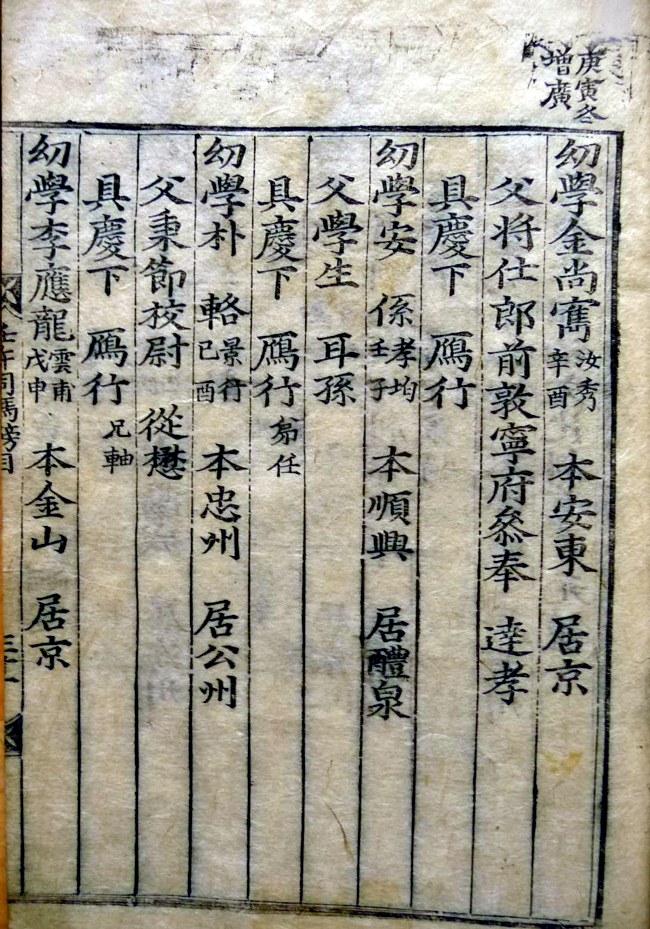 庚寅冬
增廣
幼學金尚寯 汝秀 辛酉 本安東 居京
父將仕郎前敦寧府叅奉 達孝
具慶下 鴈行
幼學安 係 孝均 壬子 本順興 居醴泉
父學生 耳孫
具慶下 鴈行 弟任
幼學朴 輅 景行 己酉 本忠州 居公州
父秉節校尉 從懋
具慶下 鴈行 兄軸
幼學李應龍 雲甫 戊申 本金山 居京
壬午司馬榜目